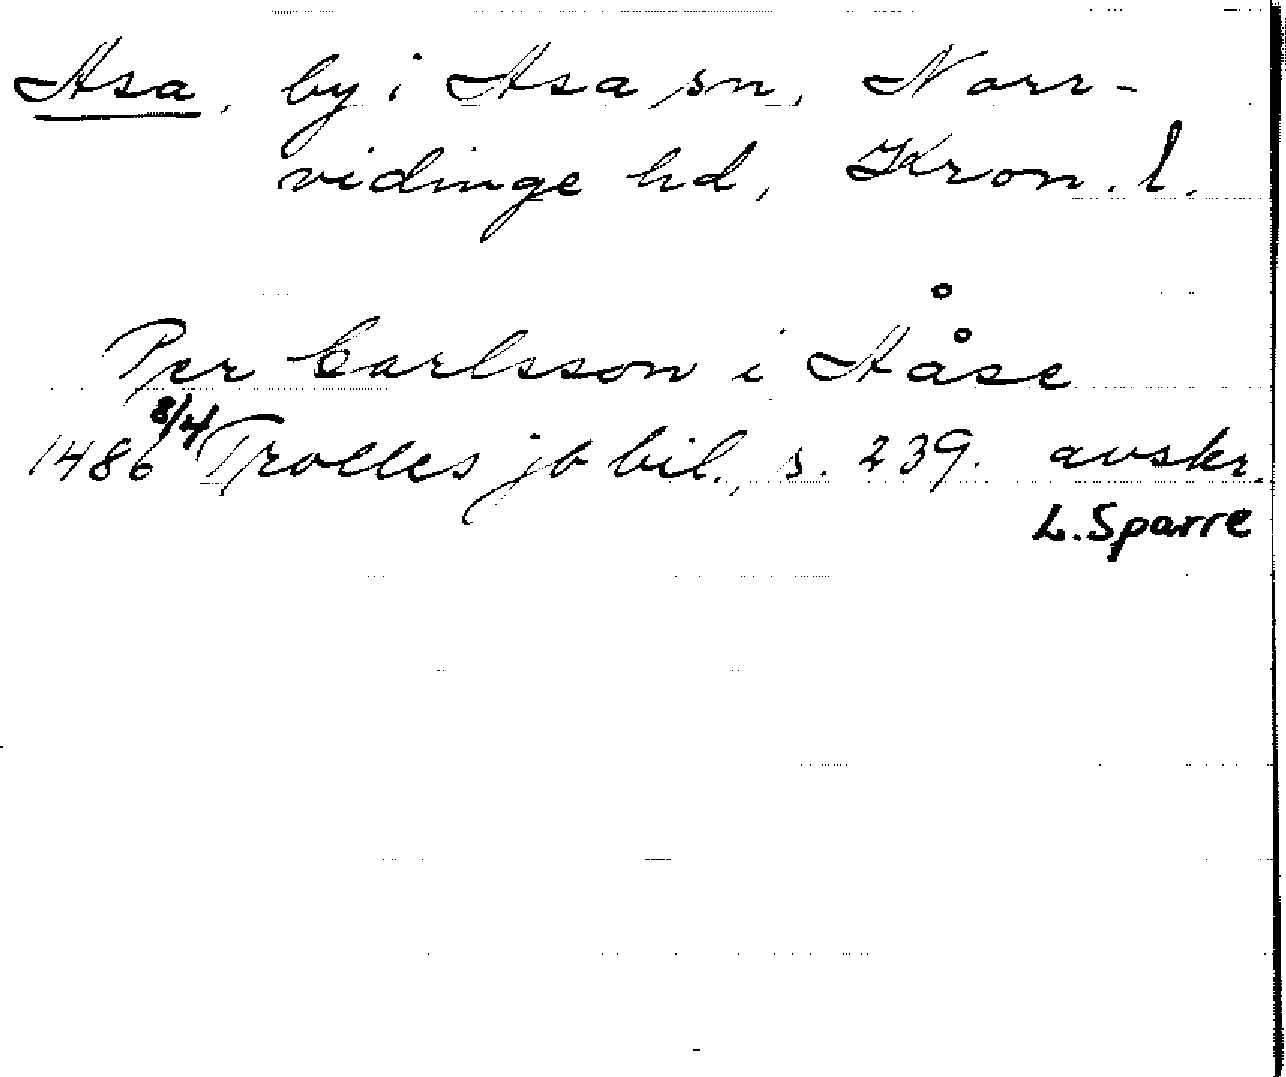 Asa, by i Asa sn, Norr-
vidinge hd, Kron. l.
Per Carlsson i Aåse
1486 8/4 Trolles jb bil., s. 239. avskr.
L. Sparre